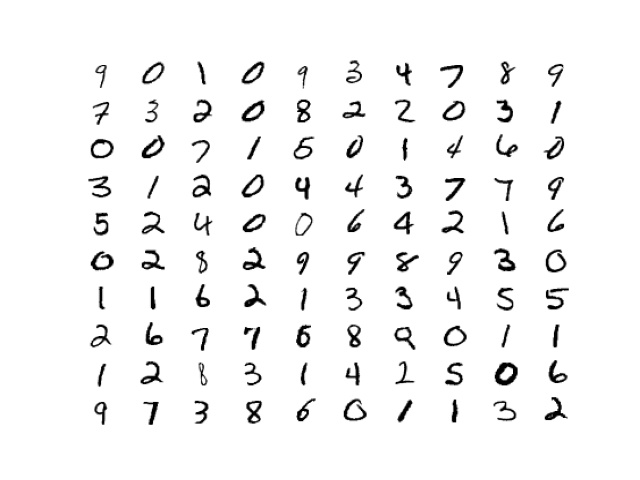 9 0 1 0 9 3 4 7 8 9
7 3 2 0 8 2 2 0 3 1
0 0 7 1 5 0 1 4 6 0
3 1 2 0 4 4 3 7 7 9
5 2 4 0 0 6 4 2 1 6
0 2 8 2 9 9 8 9 3 0
1 1 6 2 1 3 3 4 5 5
2 6 7 7 6 8 9 0 1 1
1 2 8 3 1 4 2 5 0 6
9 7 3 8 6 0 1 1 3 2